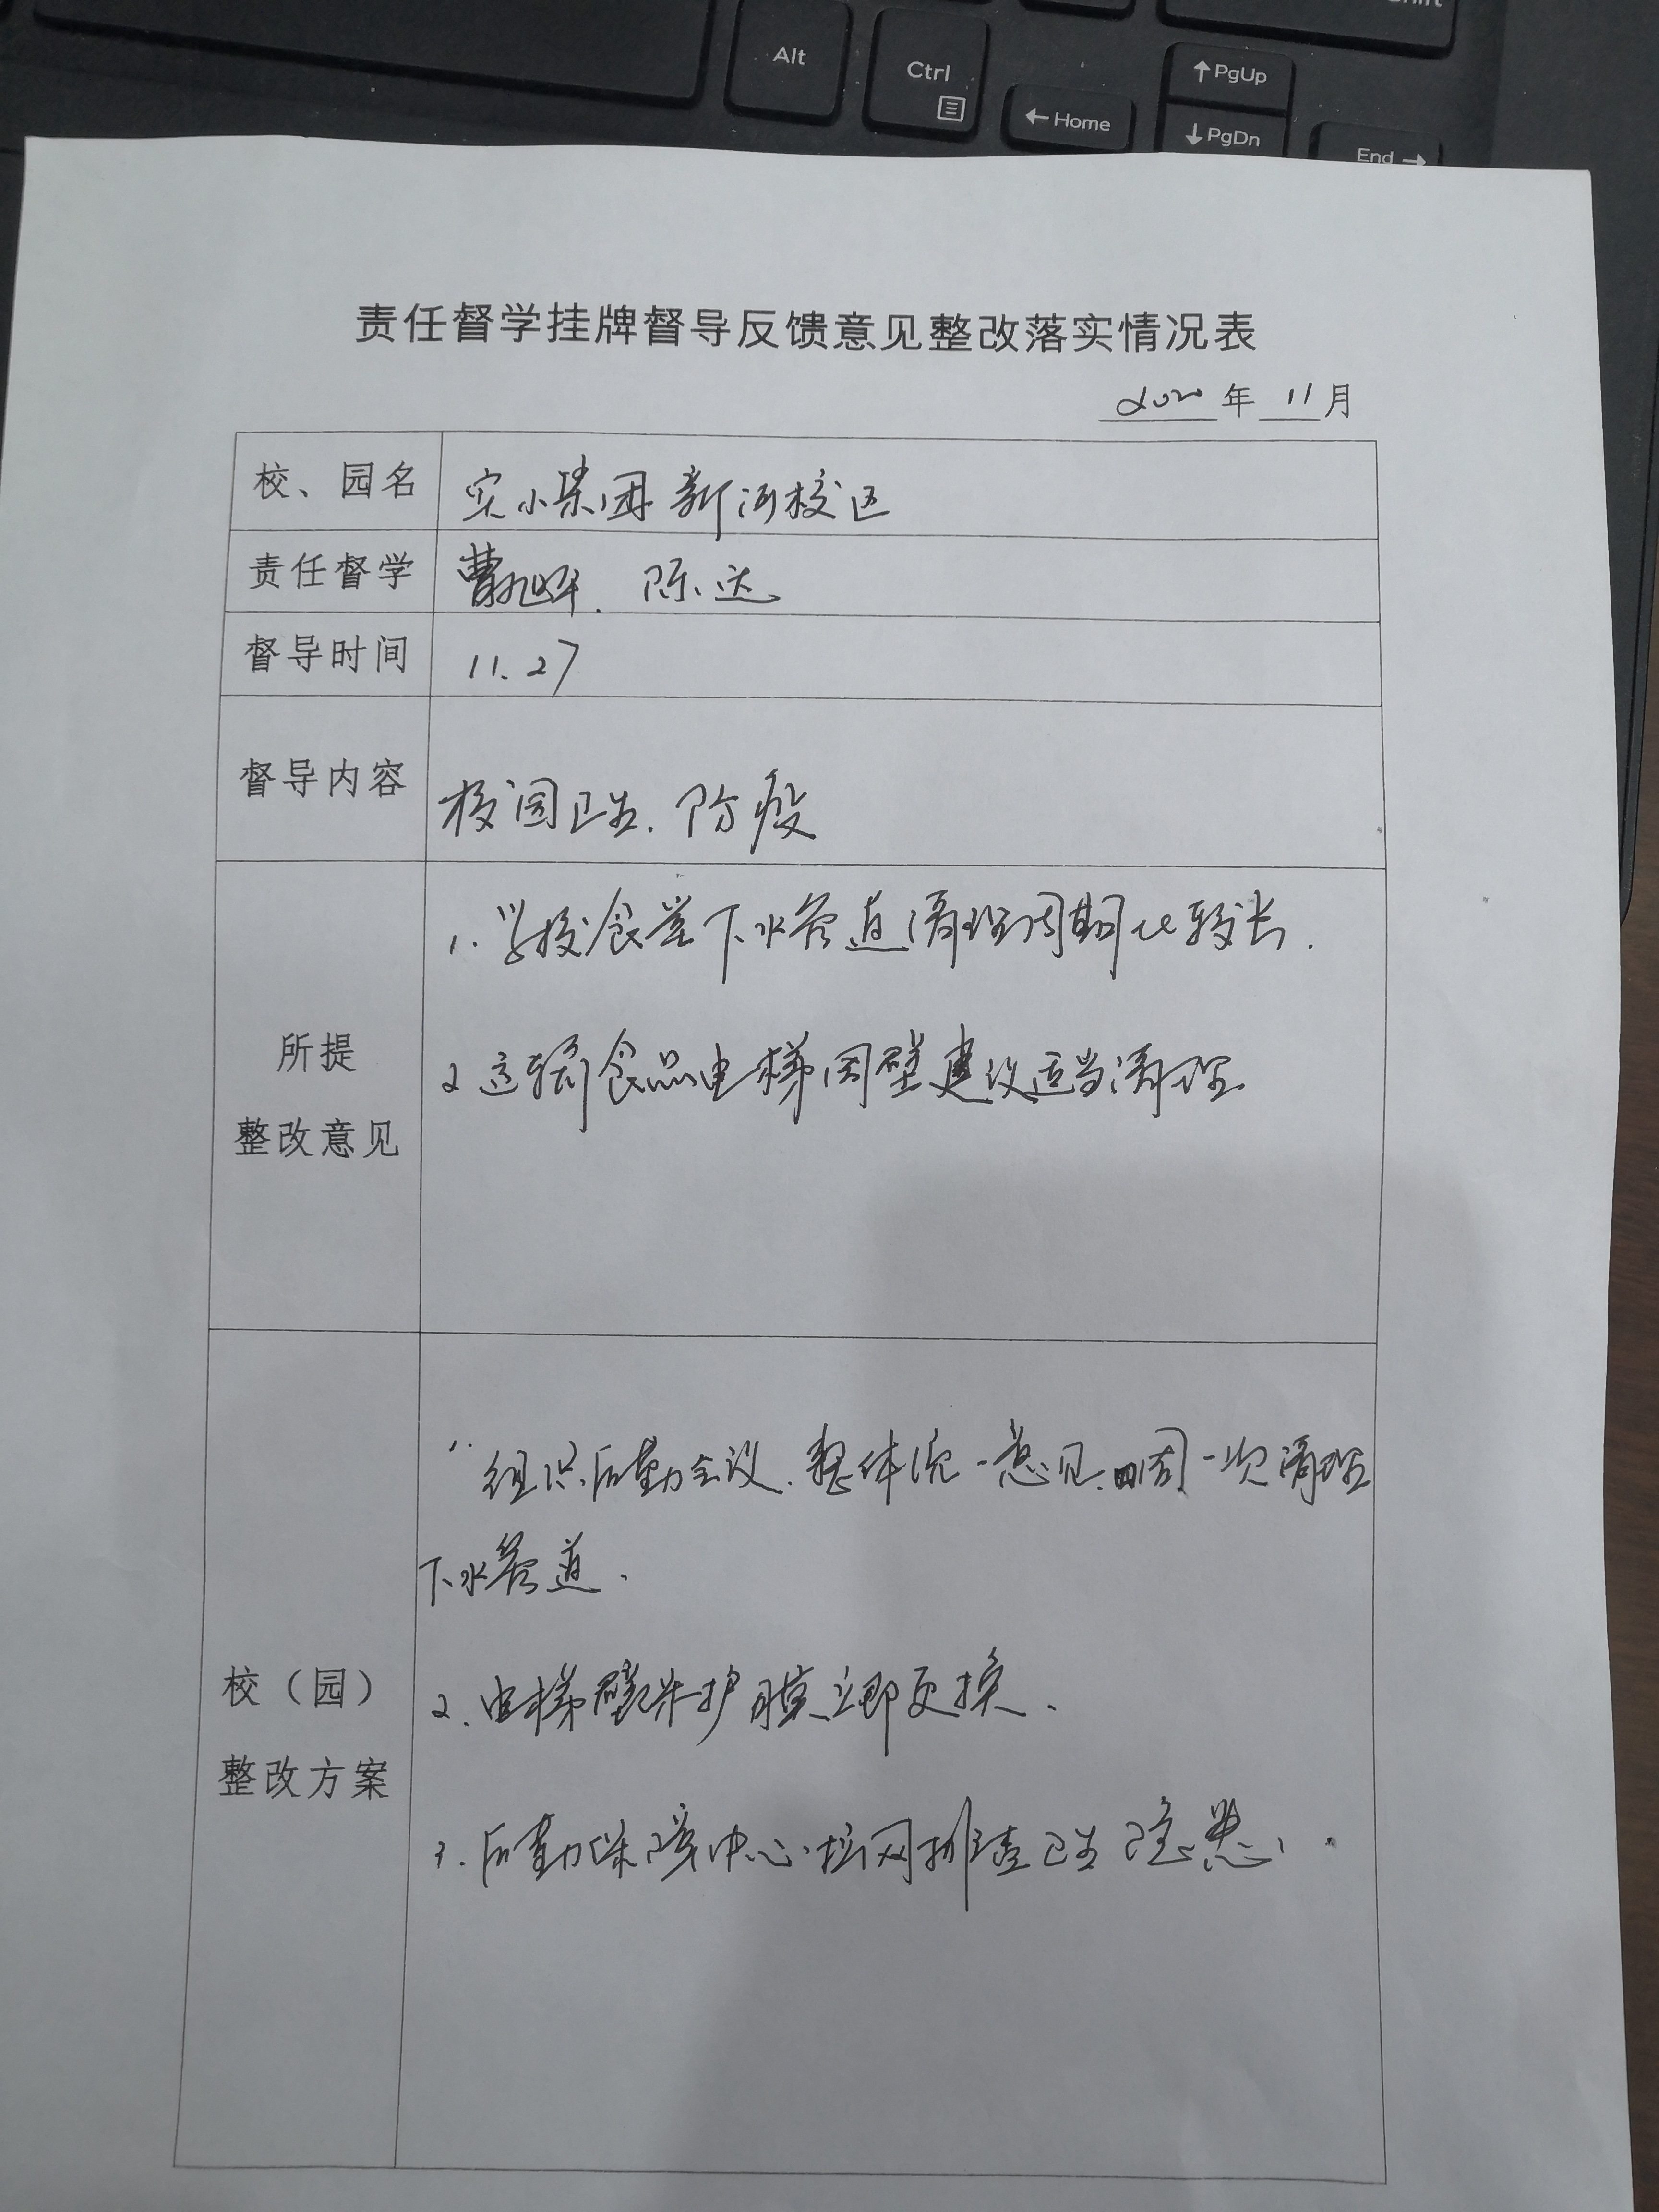 Shift
Alt
Ctrl
PgUp
Home
PgDn
End
责任督学挂牌督导反馈意见整改落实情况表
2020年 11月
校、园名 实小集团新河校区
责任督学 曹旭军. 陈达
督导时间 11.27
督导内容 校园卫生. 防疫
所提
整改意见
1. 学校食堂下水管道清理周期比较长.
2 运输食品电梯周壁建议适当清理
校（园）
整改方案
1. 组织后勤会议.整体统一意见.周一次清理
下水管道.
2. 电梯壁保护膜立即更换.
3. 后勤保障中心拉网排查卫生隐患.